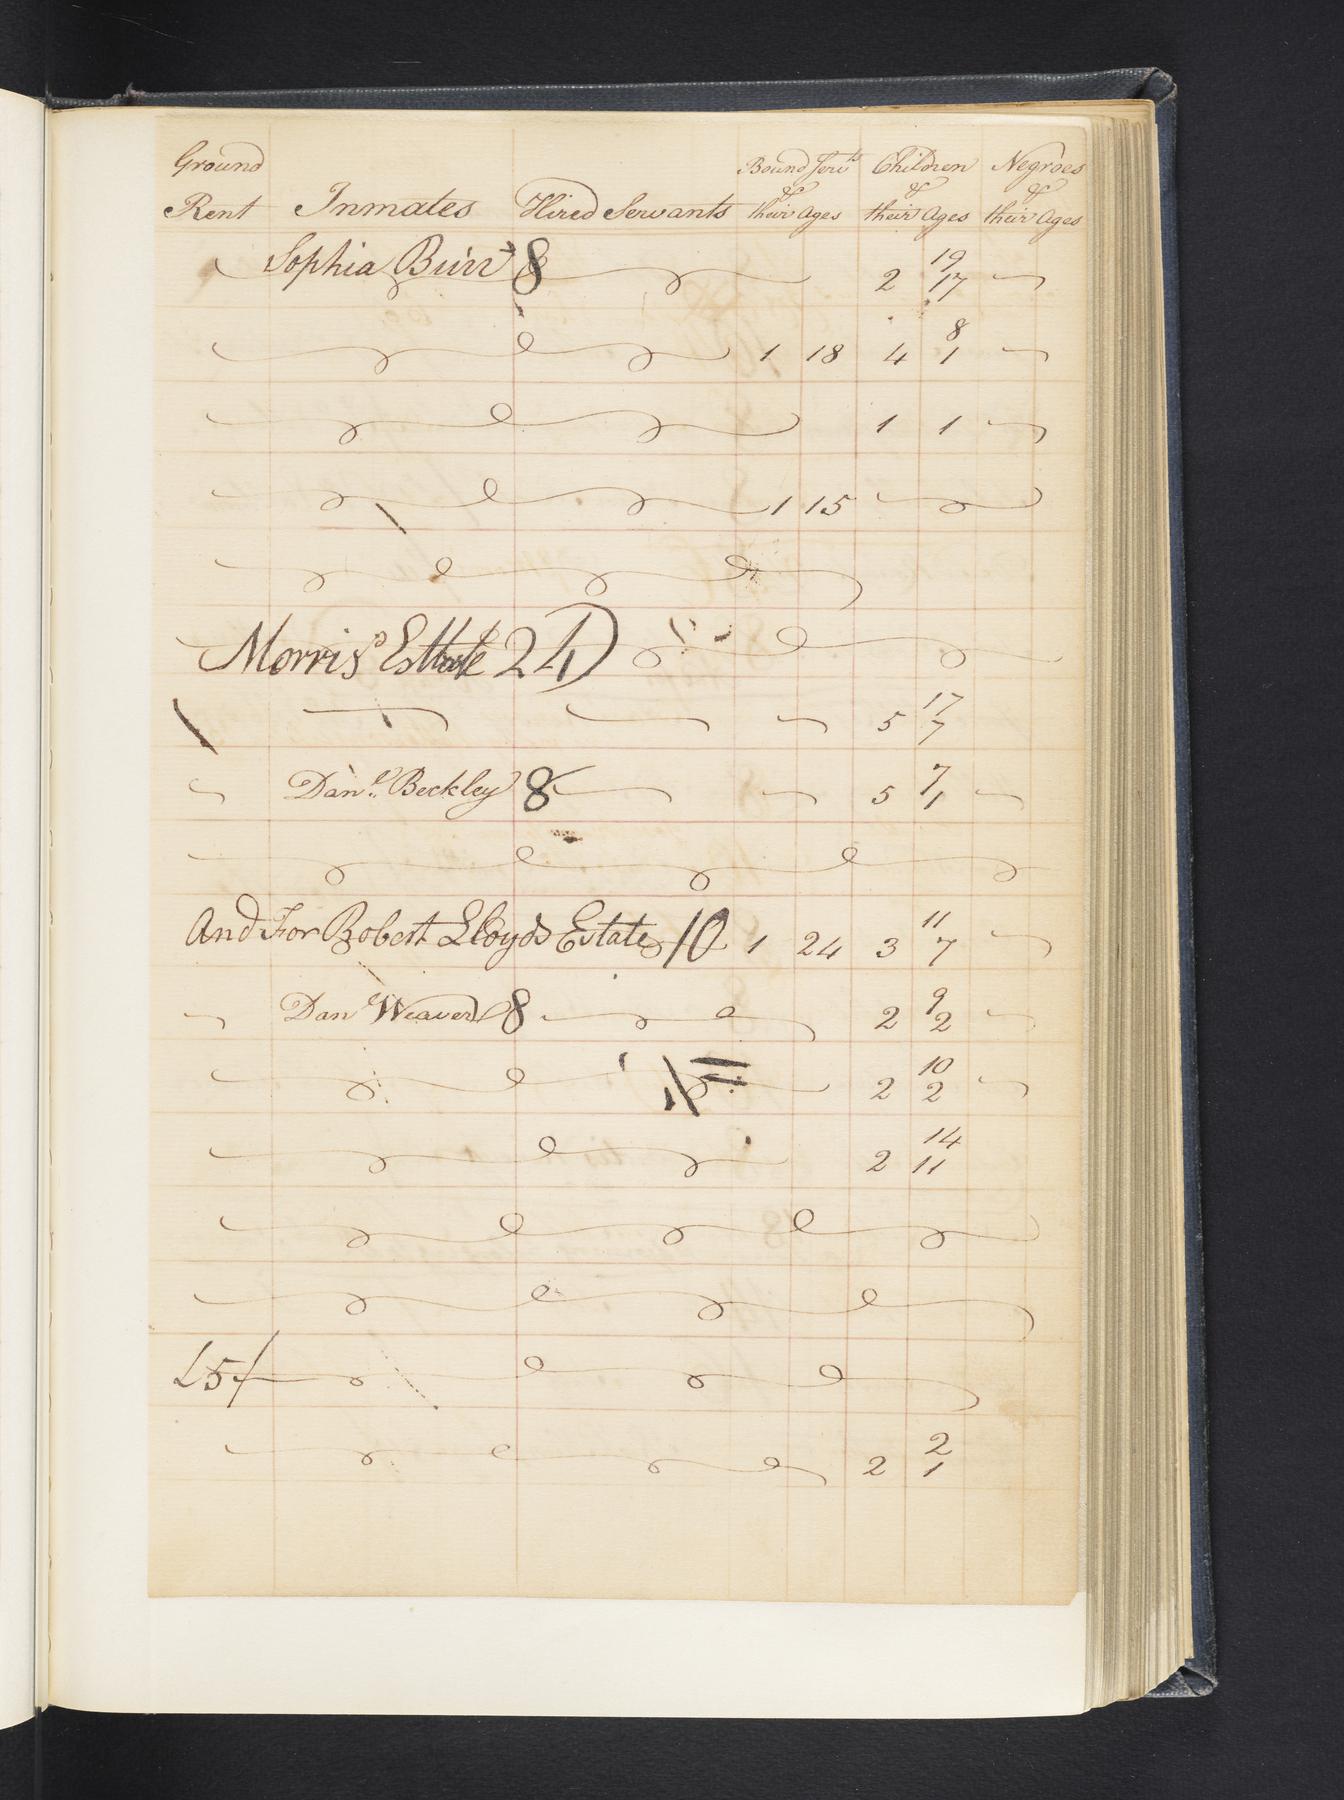 Ground Rent Inmates Hired Servants Bound Servts & their Ages Children & their Ages Negroes & their Ages
Sophia Burr 8 2 19 17
1 18 4 8 1
1 1
1 15
Morris's Estate 24
5 17 7
Danl. Beckley 8 5 7 1
And For Robert Lloyds Estate 10 1 24 3 11 7
Danl Weaver 8 2 9 2
2 10 2
2 14 11
£5/
2 2 1